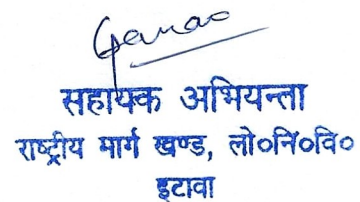 सहायक अभियन्ता
राष्ट्रीय मार्ग खण्ड, लो०नि०वि०
इटावा